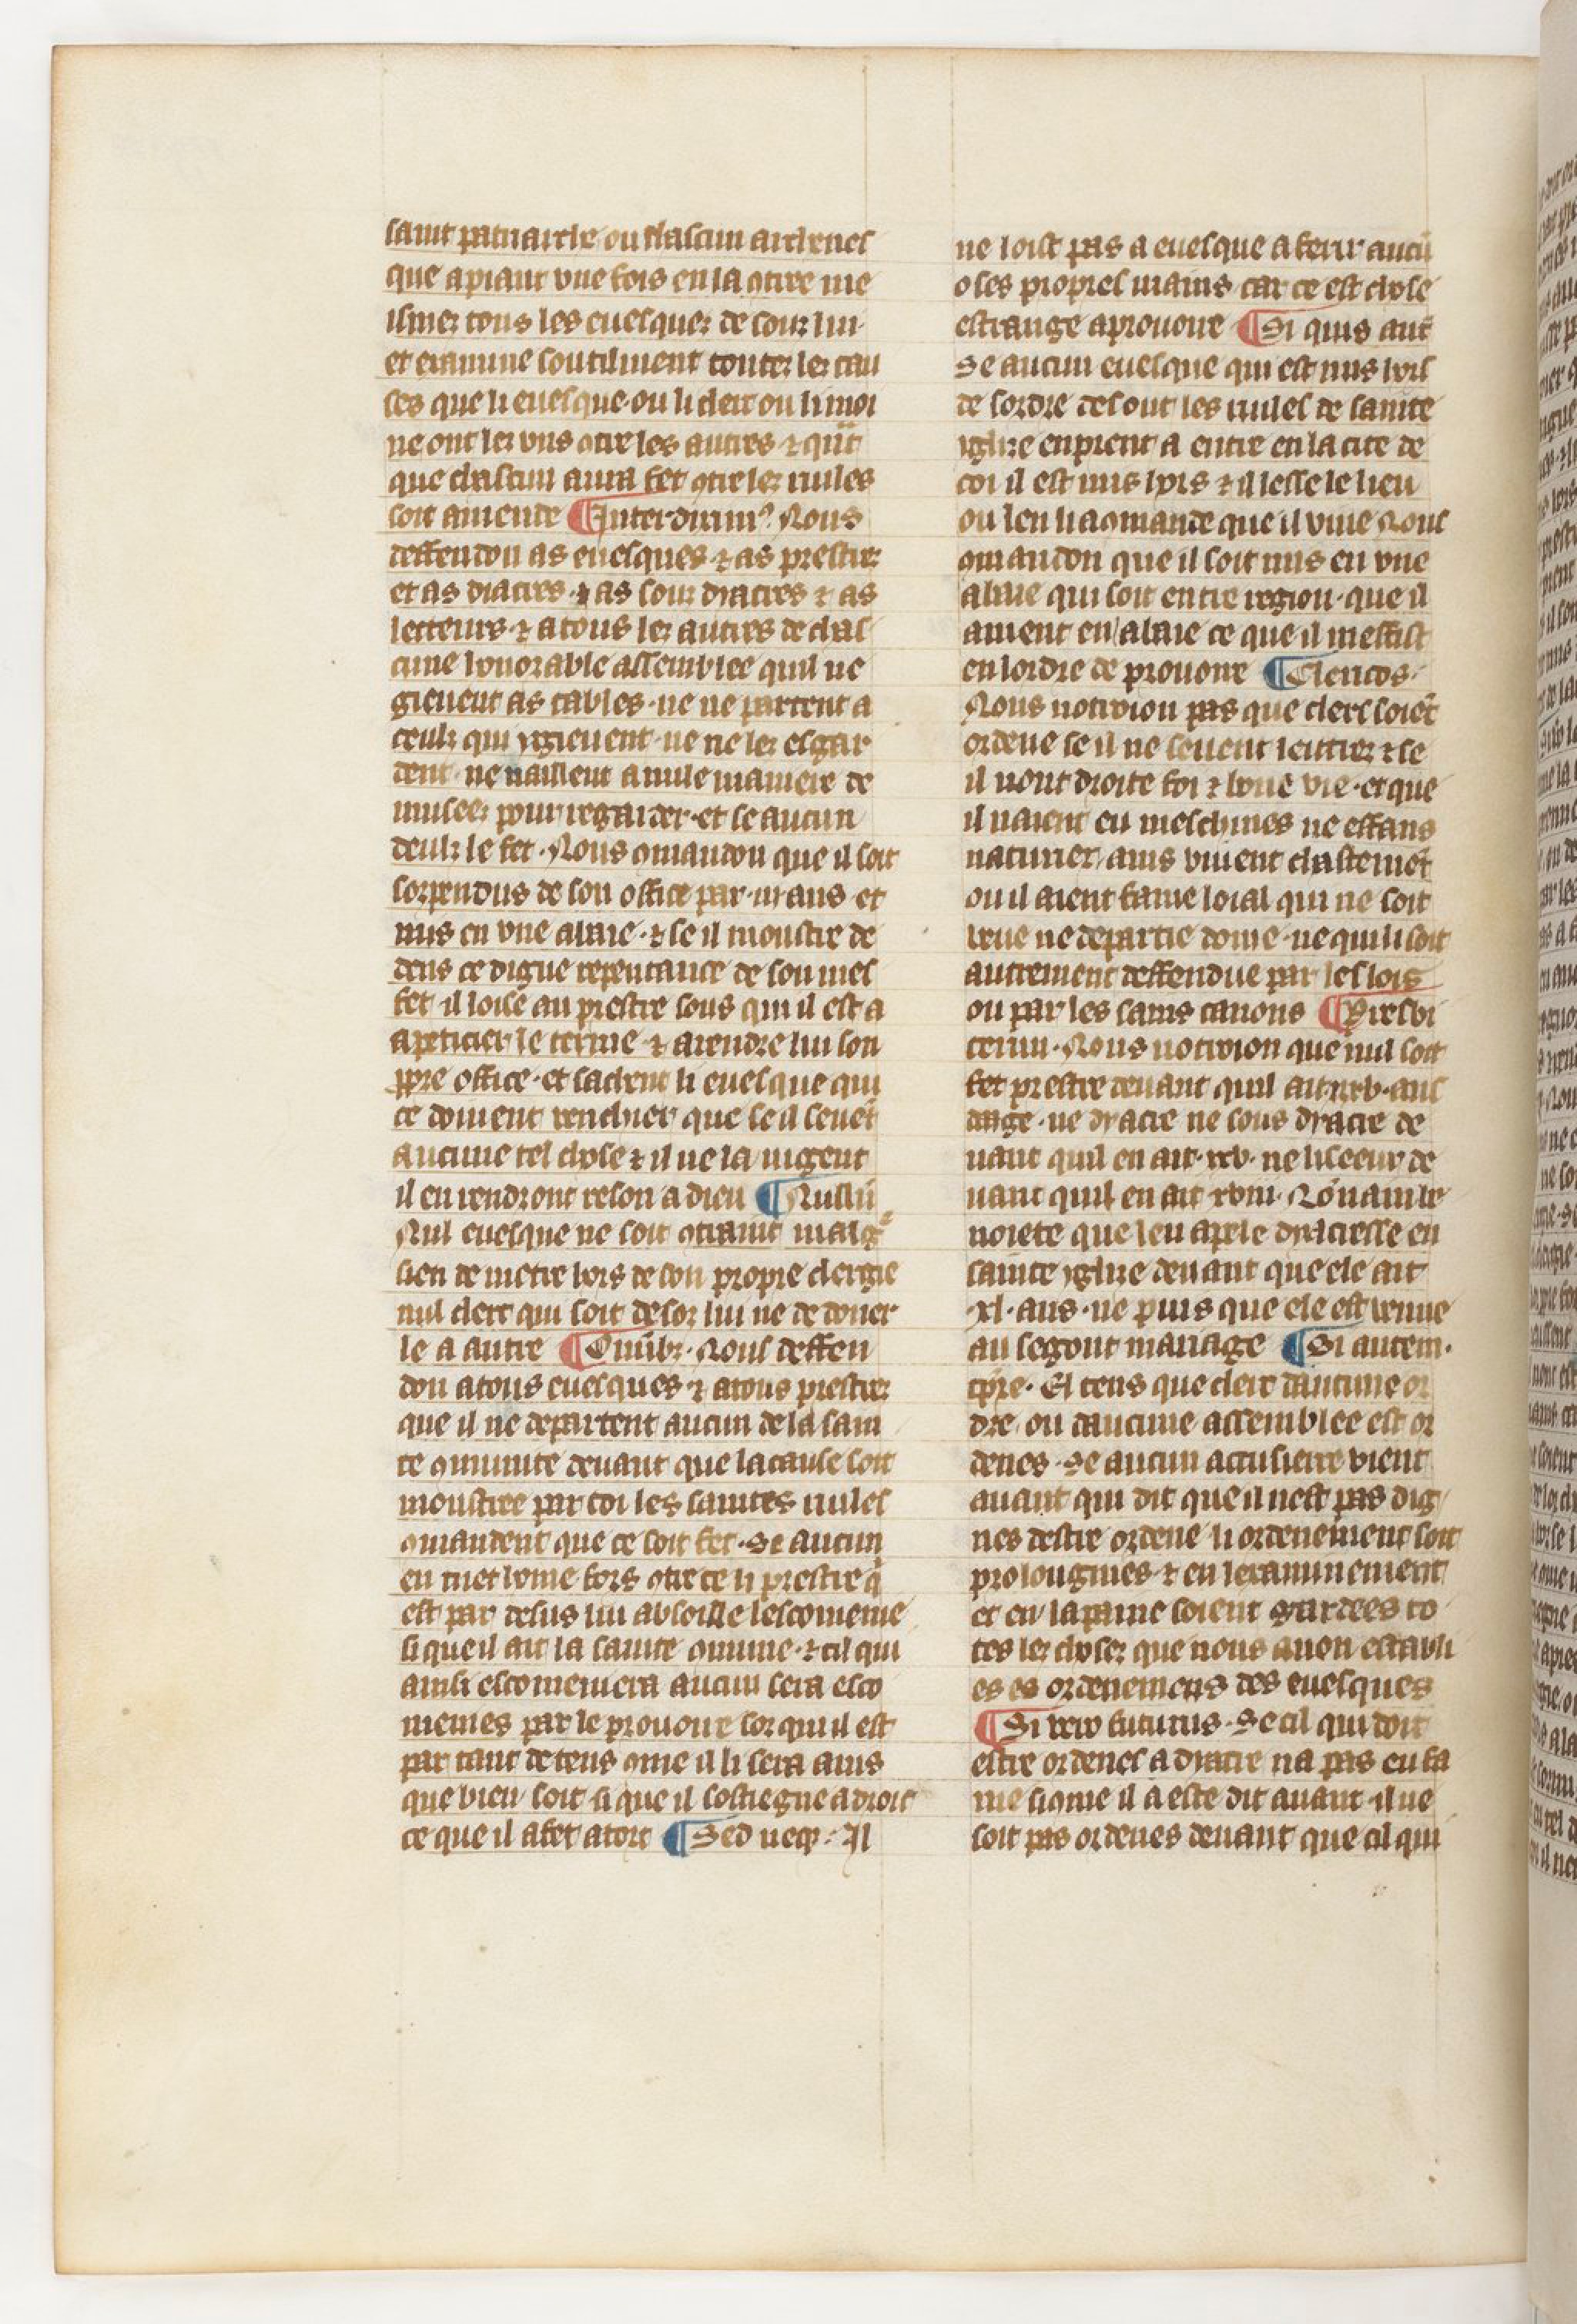 saint patriarche ou chascun archeuef
que apiaut vne fois en la ↄtree me
ismez tous les euesquez de souz lui·
et examine soutilment toutez lez cau
ses que li euesque ou li clerc ou li moi
ne ont lez vns ↄtre les autres ⁊ qͣnt
que chascun aura fet ↄtre lez riules
soit amende ¶ Interdicim⁹· Nous
deffendon as euesques ⁊ as prestrez
et as diacres ⁊ as souz dyacres ⁊ as
lecteurs ⁊ a tous lez autres de chas
cune honorable assemblee quil ne
gieuent as tables · ne ne partent a
ceulz qui ygieuent · ne ne lez esgar
dent · ne naillent a nule maniere de
musees pour regarder · et se aucun
deulz le fet · Nous ↄmandon que il soit
sorpendus de son office par · iij · ans et
mis en vne abaie · ⁊ se il moustre de
dens ce digne repentance de son mes
fet il loise au prestre sous qui il est a
apeticier le terme ⁊ a rendre lui son
ꝓpre office · et sachent li euesque qui
ce doiuent venchier que se il seuēt
aucune tel chose ⁊ il ne la uigent
il en rendront reson a dieu ¶ Nullū
Nul euesque ne soit ↄtraint malg̃
sien de metre hors de son propre clergie
nul clerc qui soit desoz lui ne de doner
le a autre ¶ Omībꝫ · Nous deffen
don a tous euesques ⁊ a tous prestrez
que il ne departent aucun de la sain
te ↄmunite deuant que la cause soit
moustree par coi les saintes riules
ↄmandent que ce soit fet · Se aucun
en met home fors ↄtre ce li prestre q̇
est par desus lui absoille lescomenie
si que il ait la sainte ↄmune · ⁊ cil qui
ainsi escomeniera aucun sera esco
menies par le prouoire sorqui il est
par tant de tens ↄme il li sera auis
que bien soit si que il sostiegne a droit
ce que il a fet a tort ¶ Sed neqꝫ · Il
ne loist pas a euesque a ferir aucū
o ses propres mains car ce est chose
estrange a prouoire ¶ Si quis aūt
Se aucun euesque qui est mis hors
de sordre desout les riules de sainte
yglise enprent a entre en la cite de
coi il est mis hors ⁊ il lesse le lieu
ou len li a ↄmande que il viue Nous
ↄmandon que il soit mis en vne
abaie qui soit entre region · que il
ament en labaie ce que il meffist
en lordre de prouoire ¶ Clericos·
Nous notroion pas que clers soiēt
ordene se il ne seuent lettrez ⁊ se
il nont droite foi ⁊ bone vie · et que
il naient eu meschines ne effans
naturiex ains viuent chastemēt
ou il aient fame loial qui ne soit
veue ne departie dome · ne qui li soit
autrement deffendue par les lois
ou par les sains canons ¶ Presbi
terum · Nous notroion que nul soit
fet prestre deuant quil ait · xxxv · ans
dage · ne dyacre ne sous dyacre de
uant quil en ait · xxv · ne liseeur de
uant quil en ait xviii · No ūam le
noiete que len apele dyacresse en
sainte yglise deuant que ele ait
·xl· ans · ne puis que ele est venue
au segont mariage ¶ Si autem·
tp̄re · El tens que clerc daucune or
dre ou daucune assemblee est or
denes · Se aucun accusierre vient
auant qui dit que il nest pas dig
nes destre ordene li ordenement soit
prolougnies ⁊ en lexaminement
et en la paine soient gardees to
tes lez chosez que nous auon establi
es es ordenemens des euesques
¶ Si vero futurus · Se cil qui doit
estre ordenes a dyacre na pas eu fa
me si ↄme il a este dit auant il ne
soit pas ordenes deuant que cil qui